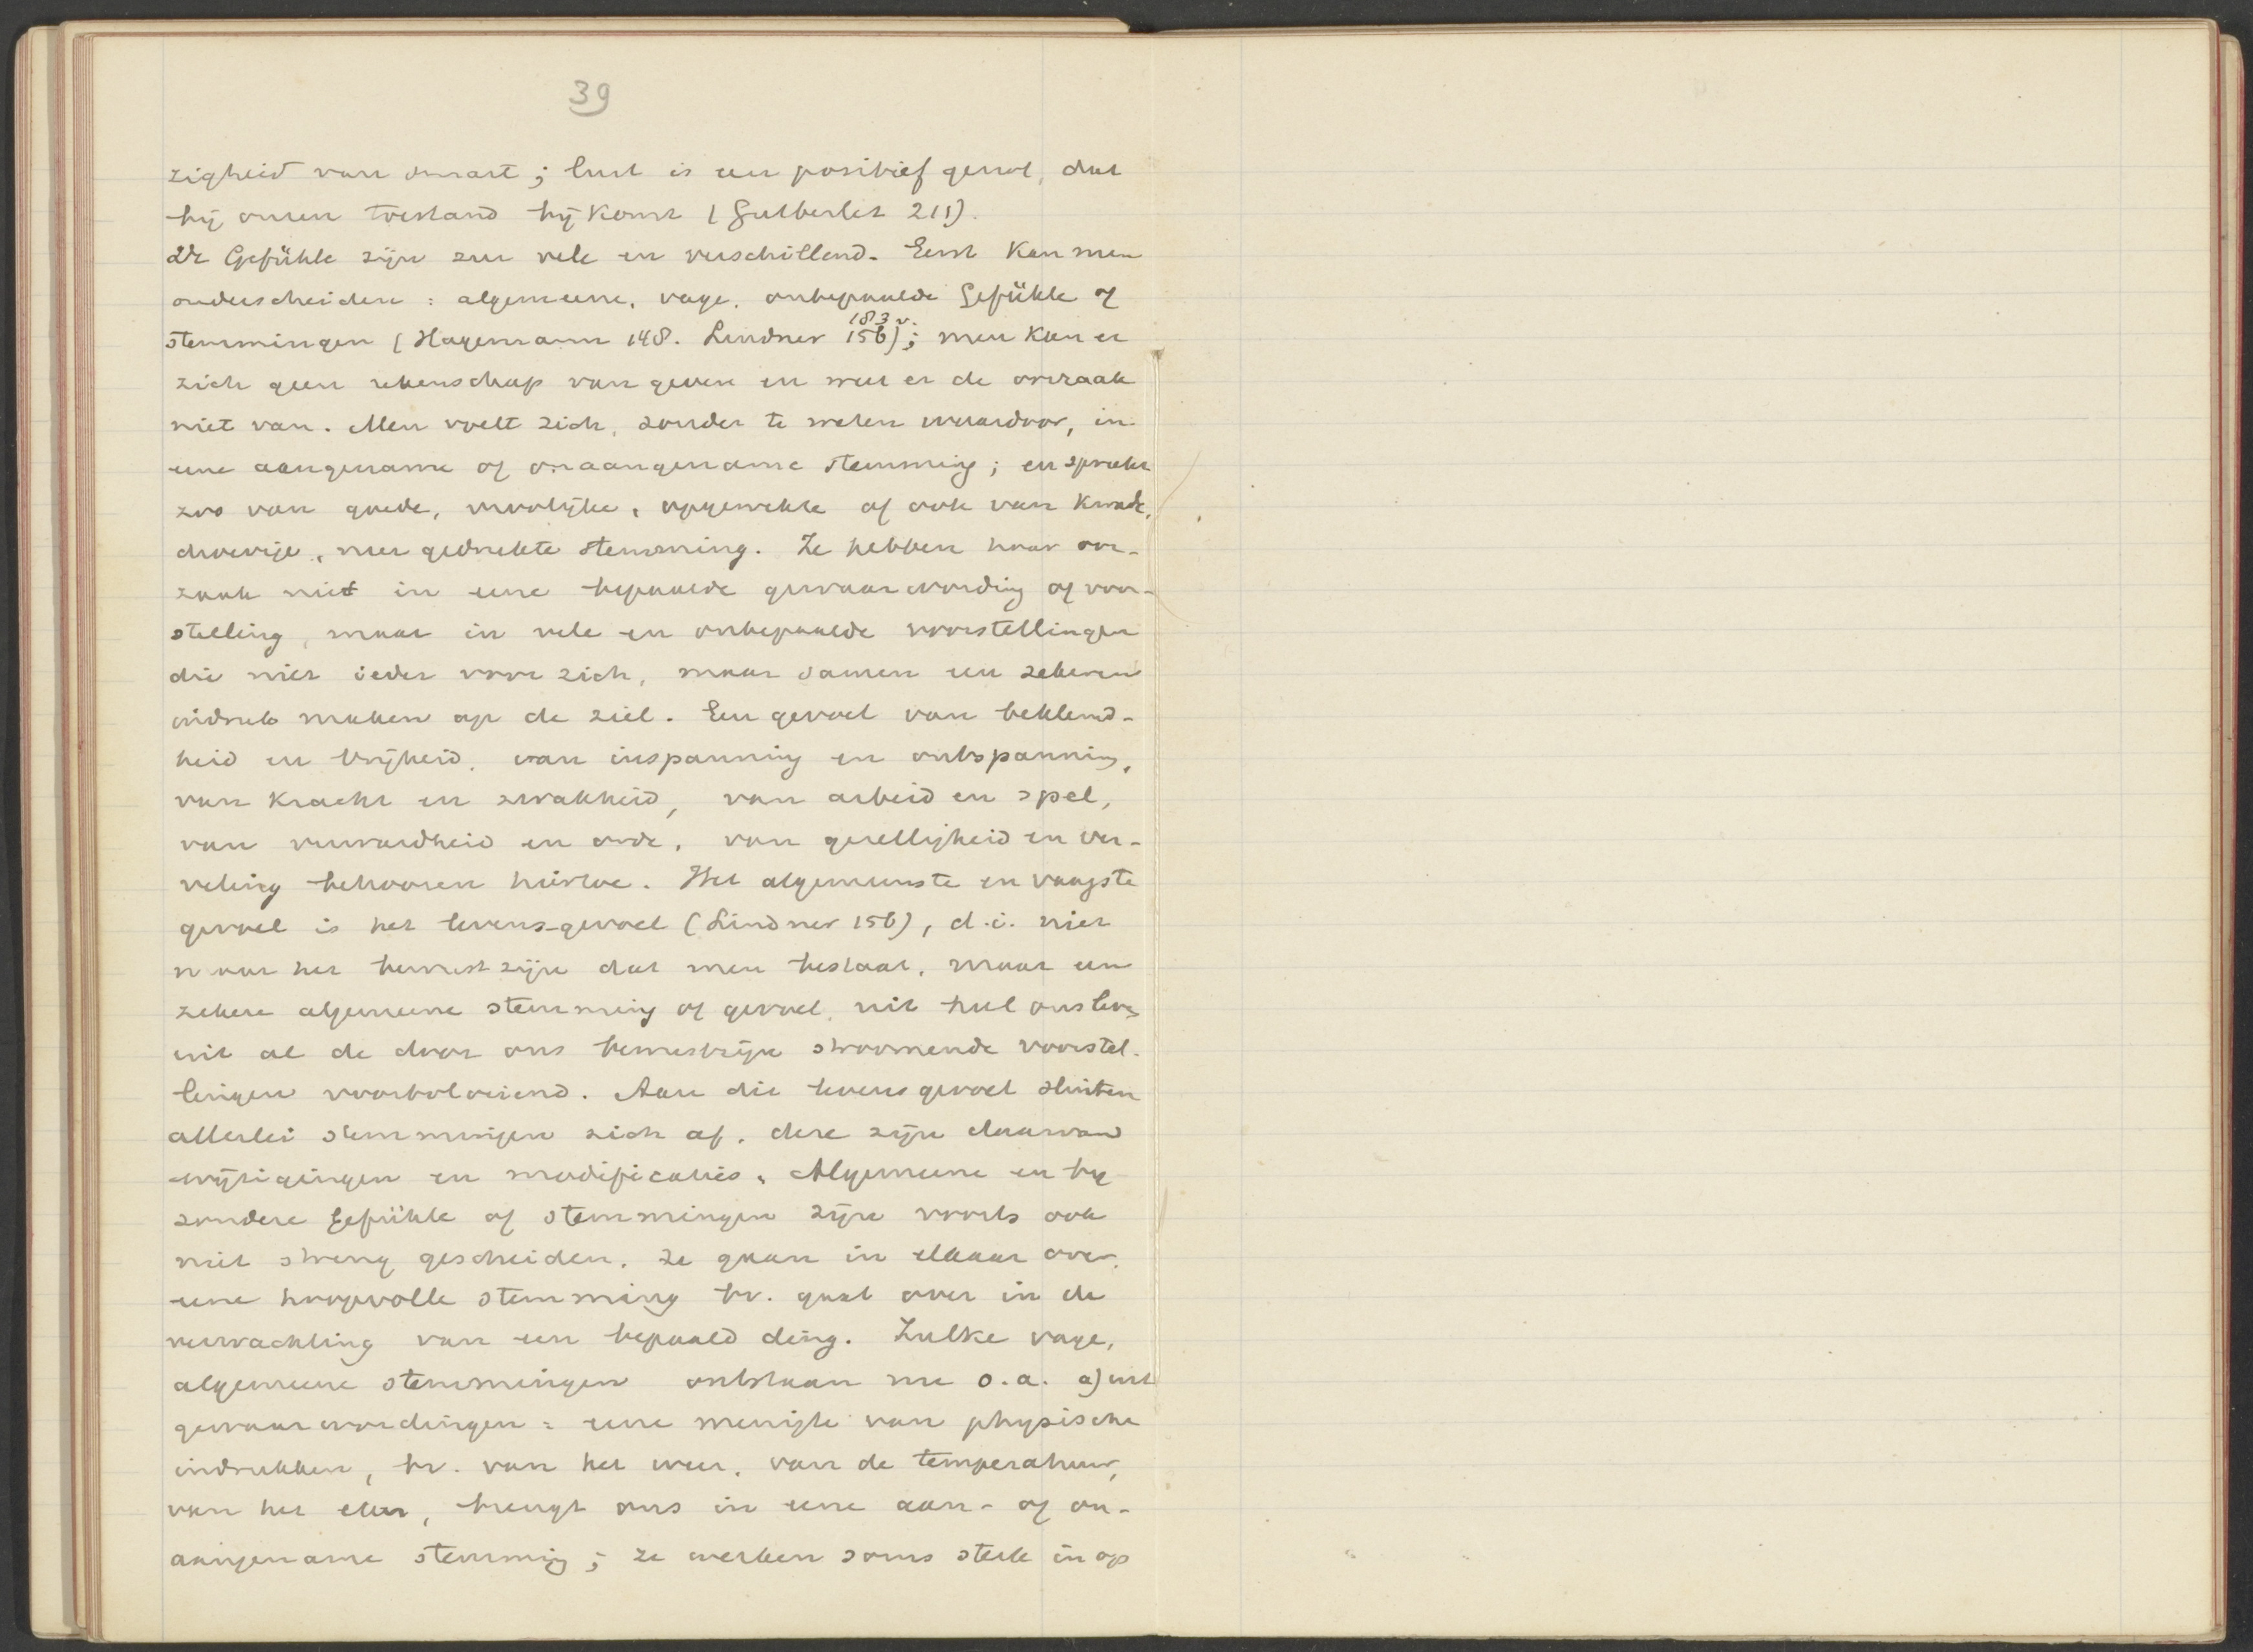 39
zigheid van smart; lust is een positief genot, dat
bij onzen toestand bij komt (Gutberlet 211).
De Gefühle zijn zeer vele en verschillend. Eerst kan men
onderscheiden: algemeene, vage, onbepaalde Gefühle of
183 v.
stemmingen (Hagemann 148. Lindner 156); men kan er
zich geen rekenschap van geven en weet er de oorzaak
niet van. Men voelt zich, zonder te weten waardoor, in
eene aangename of onaangename stemming; en spreekt
zoo van goede, vroolijke, opgewekte of ook van kwade,
droevige, neergedrukte stemming. Ze hebben haar oor-
zaak niet in eene bepaalde gewaarwording of voor-
stelling, maar in vele en onbepaalde voorstellingen
die niet ieder voor zich, maar samen een zekeren
indruk maken op de ziel. Een gevoel van beklemd-
heid en vrijheid, van inspanning en ontspanning,
van kracht en zwakheid, van arbeid en spel,
van verwardheid en orde, van gezelligheid en ver-
veling behooren hiertoe. Het algemeenste en vaagste
gevoel is het levens-gevoel (Lindner 156), d.i. niet
maar het bewustzijn dat men bestaat, maar een
zekere algemeene stemming of gevoel, uit heel ons leven
uit al de door ons bewustzijn stroomende voorstel-
lingen voortvloeiend. Aan dit levensgevoel sluiten
allerlei stemmingen zich af, deze zijn daarvan
wijzigingen en modificaties. Algemeene en bij
zondere Gefühle of stemmingen zijn voorts ook
niet streng gescheiden, ze gaan in elkaar over,
eene hoopvolle stemming bv. gaat over in de
verwachting van een bepaald ding. Zulke vage,
algemeene stemmingen ontstaan nu o.a. a) uit
gewaarwordingen: eene menigte van physische
indrukken, bv. van het weer, van de temperatuur,
van het eten, brengt ons in eene aan- of on-
aangename stemming; ze werken soms sterk in op